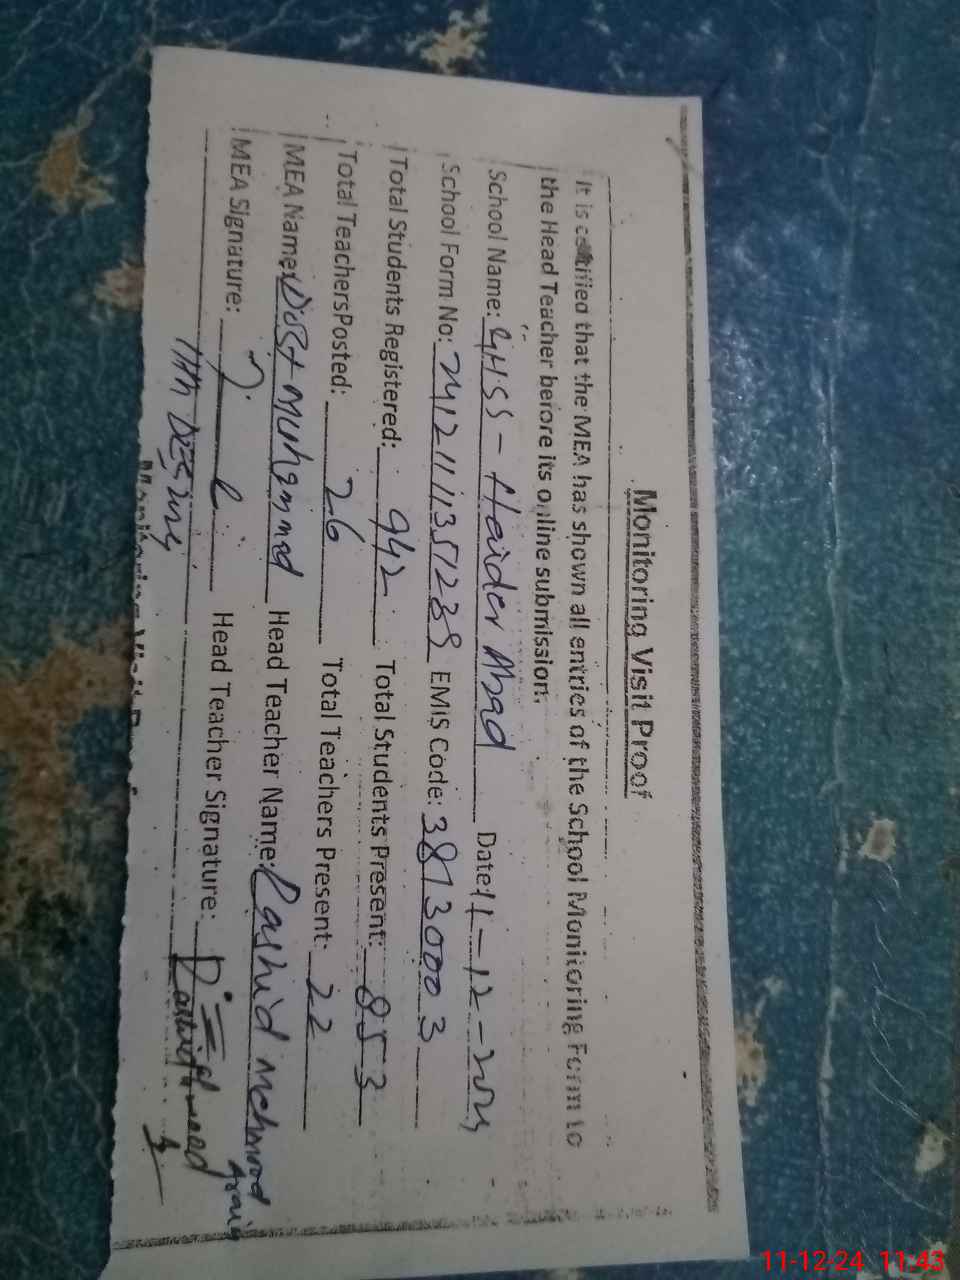 Monitoring Visit Proof
It is certified that the MEA has shown all entries of the School Monitoring Form to
the Head Teacher before its online submission.
School Name: GHSS - Haider Abad Date: 11-12-2024
School Form No: 2412111351239 EMIS Code: 38130003
Total Students Registered: 942 Total Students Present: 853
Total Teachers Posted: 26 Total Teachers Present: 22
MEA Name: Dost Muhammad Head Teacher Name: Rashid Mehmood
MEA Signature: Head Teacher Signature:
11-12-24 11:43